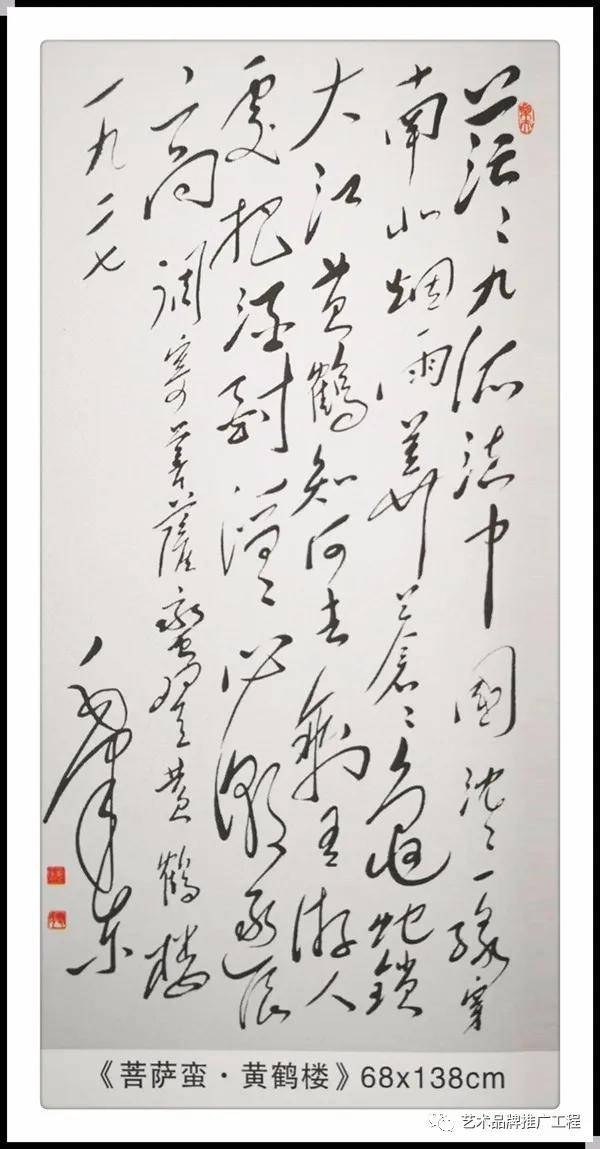 茫〻九派流中國沈〻一線穿
南北烟雨莽蒼〻龜蛇鎖
大江黄鶴知何去剩有游人
處把酒酹滔〻心潮逐浪
高调寄菩薩蠻登黄鶴楼
一九二七
毛泽东
《菩萨蛮·黄鹤楼》68x138cm
艺术品牌推广工程